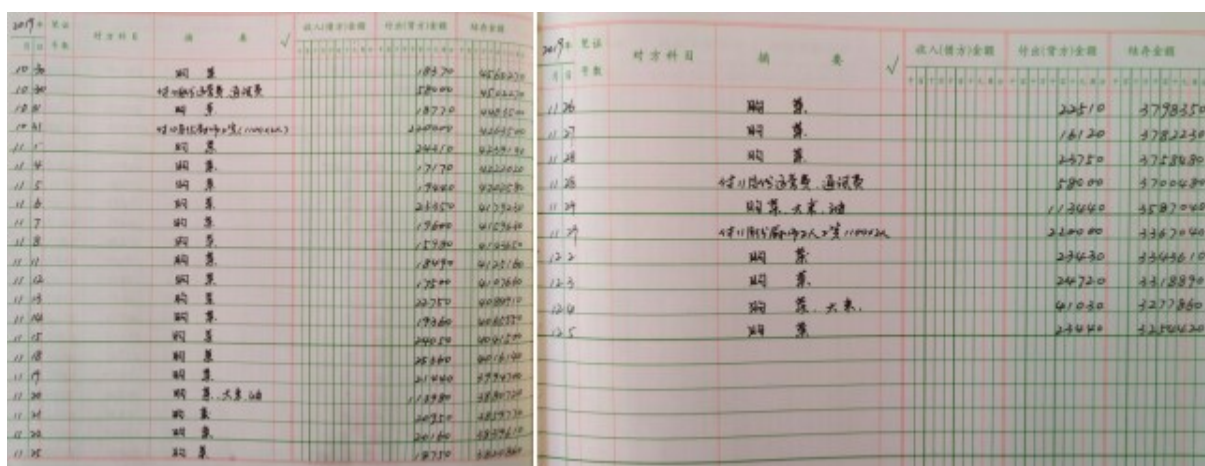 2019年 凭证 对方科目 摘要 √ 收入(借方)金额 付出(贷方)金额 结存金额
月 日 号数
10 30 购菜 18370 4560270
10 30 付10月份运营费、通讯费 58000 4502270
10 31 购菜 18770 4483500
10 31 付10月份厨师工资(11000x2人) 220000 4263500
11 1 购菜 24310 4239190
11 4 购菜 17170 4222020
11 5 购菜 19440 4202580
11 6 购菜 23350 4179230
11 7 购菜 19600 4159630
11 8 购菜 15980 4143650
11 11 购菜 18490 4125160
11 12 购菜 17500 4107660
11 13 购菜 22750 4084910
11 14 购菜 19360 4065550
11 15 购菜 24050 4041500
11 18 购菜 25360 4016140
11 19 购菜 21440 3994700
11 20 购菜、大米、油 113980 3880720
11 21 购菜 20950 3859770
11 22 购菜 20160 3839610
11 25 购菜 18750 3820860
2019年 凭证 对方科目 摘要 √ 收入(借方)金额 付出(贷方)金额 结存金额
月 日 号数
11 26 购菜 22510 3798350
11 27 购菜 16120 3782230
11 28 购菜 23750 3758480
11 28 付11月份运营费、通讯费 58000 3700480
11 29 购菜、大米、油 113440 3587040
11 29 付11月份厨师2人工资11000x2人 220000 3367040
12 2 购菜 23430 3343610
12 3 购菜 24720 3318890
12 4 购菜、大米、 41030 3277860
12 5 购菜 23440 3254420